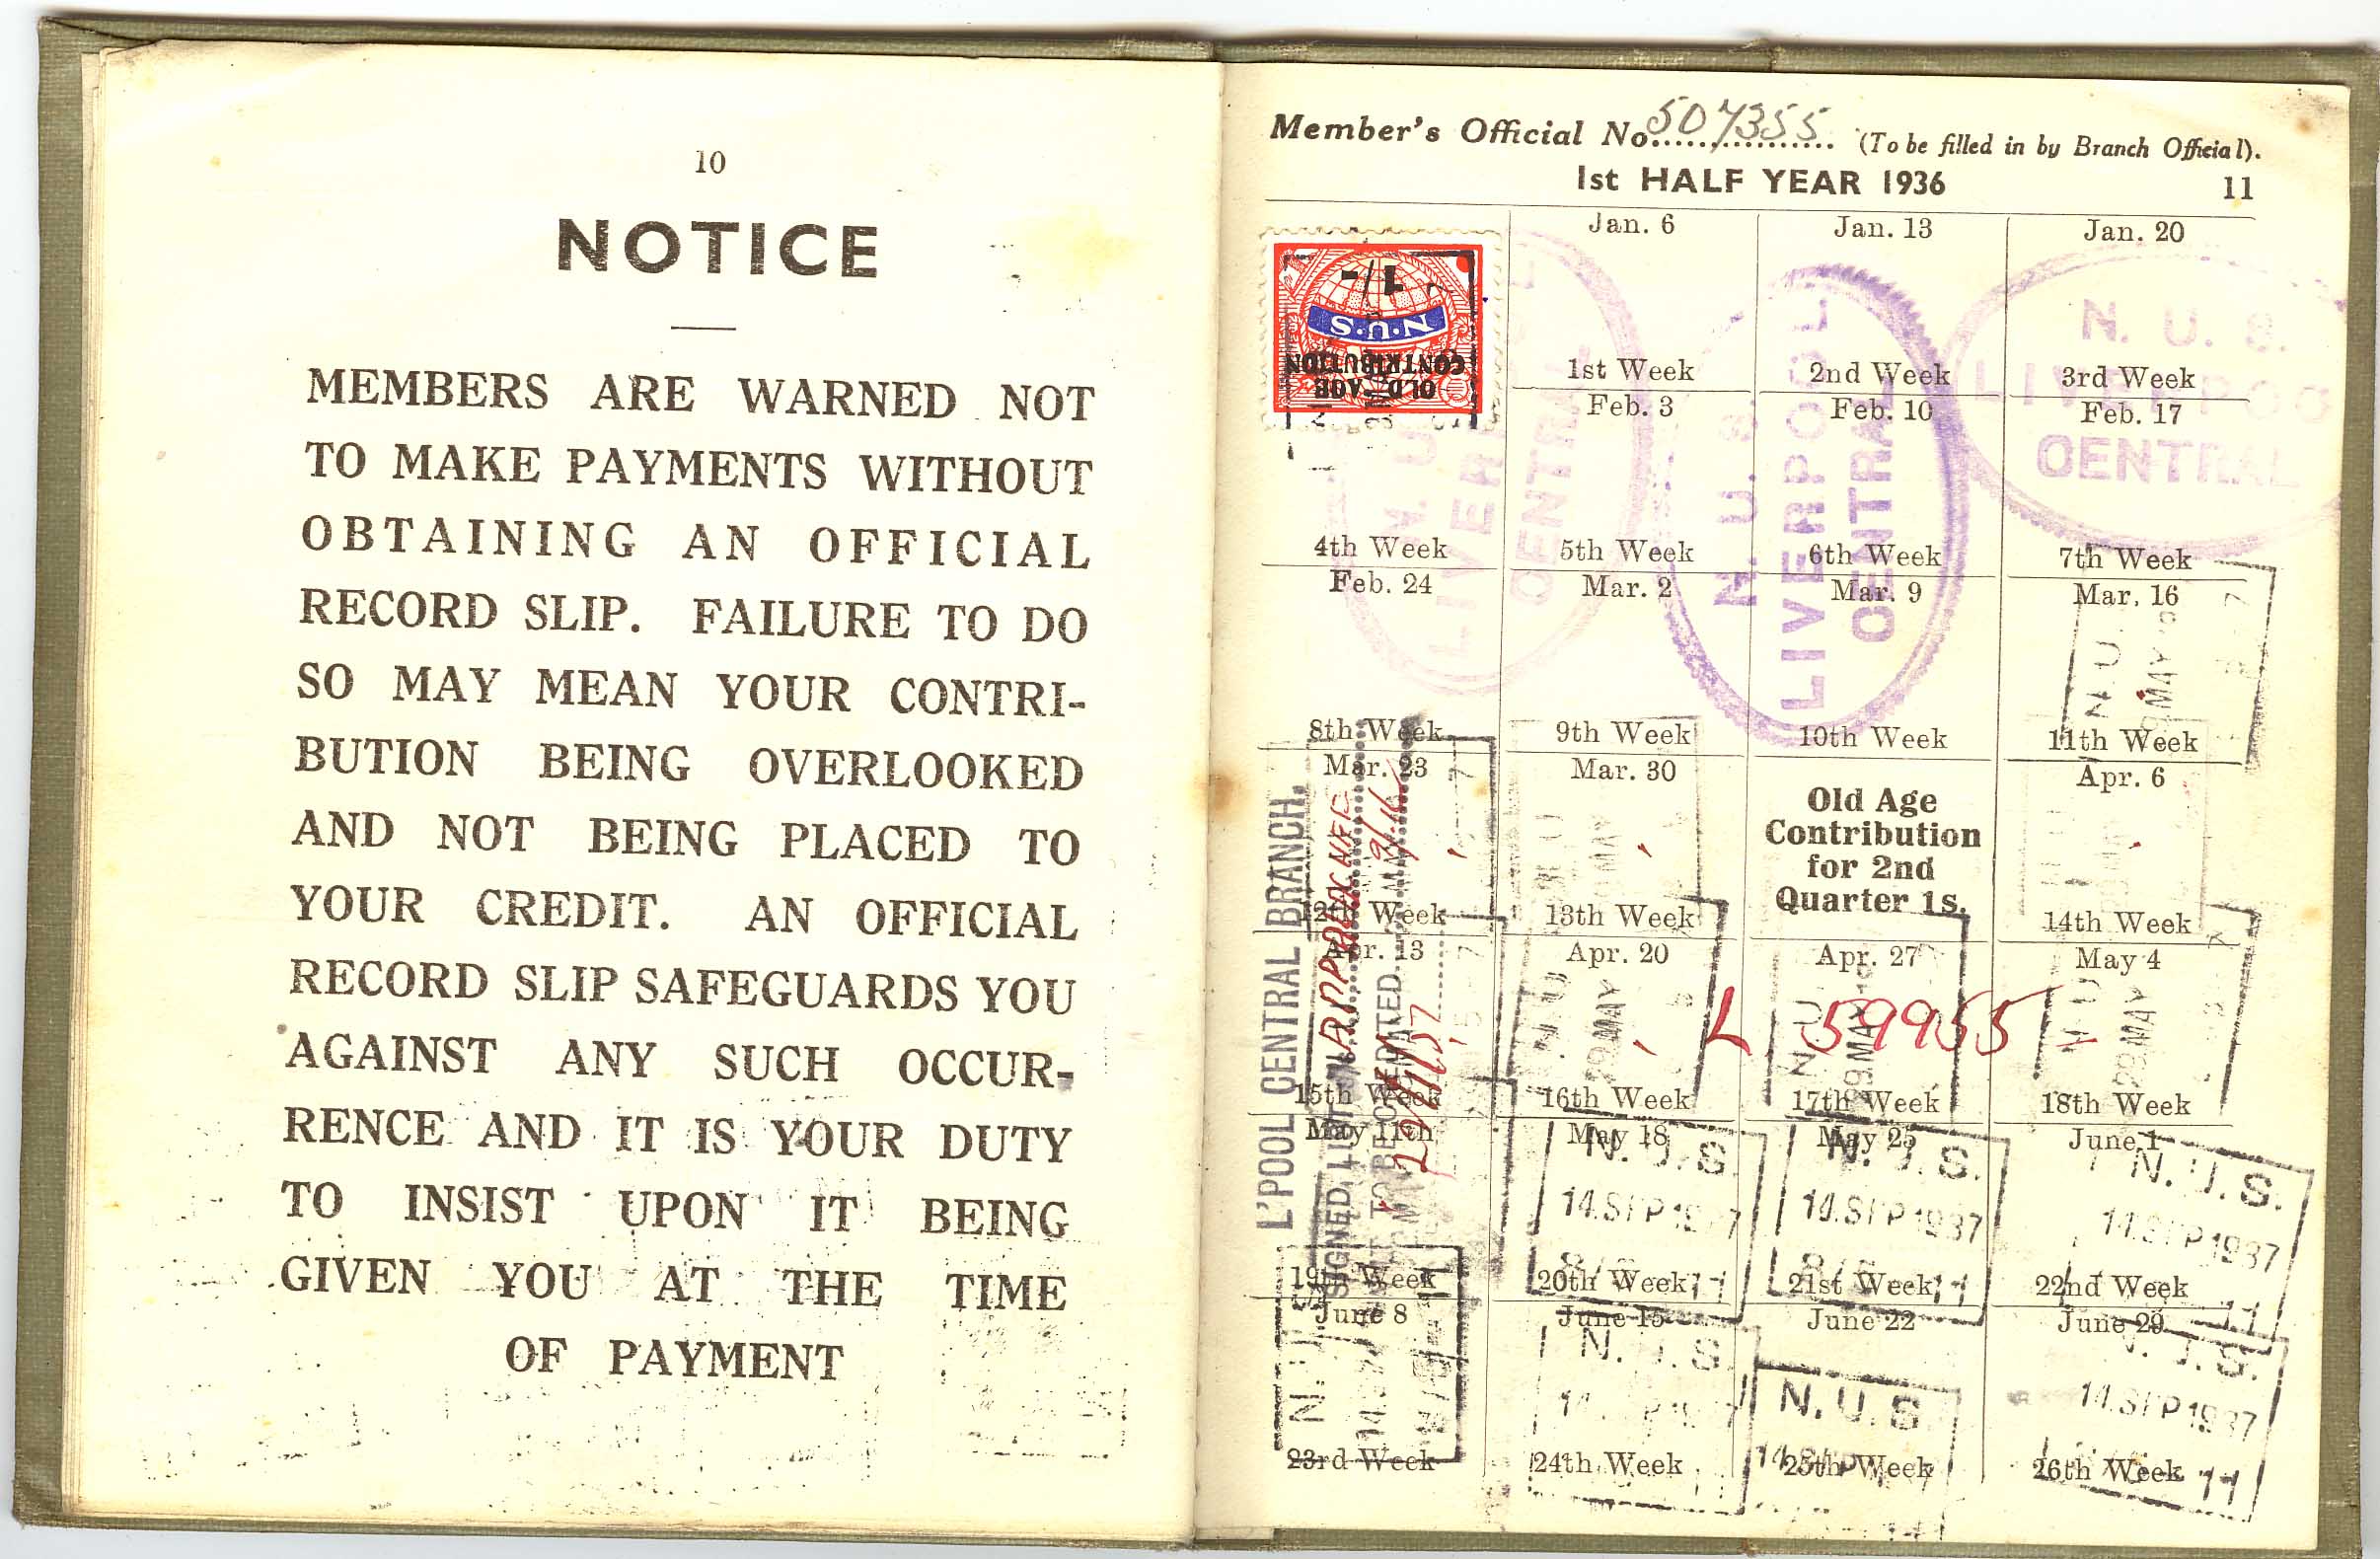 10
NOTICE
MEMBERS ARE WARNED NOT
TO MAKE PAYMENTS WITHOUT
OBTAINING AN OFFICIAL
RECORD SLIP. FAILURE TO DO
SO MAY MEAN YOUR CONTRI-
BUTION BEING OVERLOOKED
AND NOT BEING PLACED TO
YOUR CREDIT. AN OFFICIAL
RECORD SLIP SAFEGUARDS YOU
AGAINST ANY SUCH OCCUR-
RENCE AND IT IS YOUR DUTY
TO INSIST UPON IT BEING
GIVEN YOU AT THE TIME
OF PAYMENT
Member's Official No. 507355 (To be filled in by Branch Official).
1st HALF YEAR 1936
11
OLD AGE
CONTRIBUTION
N.U.S
1/-
Jan. 6 Jan. 13 Jan. 20
1st Week 2nd Week 3rd Week
Feb. 3 Feb. 10 Feb. 17
4th Week 5th Week 6th Week 7th Week
Feb. 24 Mar. 2 Mar. 9 Mar. 16
8th Week 9th Week 10th Week 11th Week
Mar. 23 Mar. 30 Old Age Contribution for 2nd Quarter 1s. Apr. 6
12th Week 13th Week 14th Week
Apr. 13 Apr. 20 Apr. 27 May 4
15th Week 16th Week 17th Week 18th Week
May 11th May 18 May 25 June 1
19th Week 20th Week 21st Week 22nd Week
June 8 June 15 June 22 June 29
23rd Week 24th Week 25th Week 26th Week
N. U. S.
LIVERPOOL
CENTRAL
N. U. S.
LIVERPOOL
CENTRAL
LIVER
CENTRAL
L'POOL CENTRAL BRANCH.
SIGNED
L 59955
29 MAY
29 MAY
29 MAY
N.U.S.
14 SEP 1937
N.U.S.
14 SEP 1937
N.U.S.
14 SEP 1937
N.U.S
14 SEP 1937